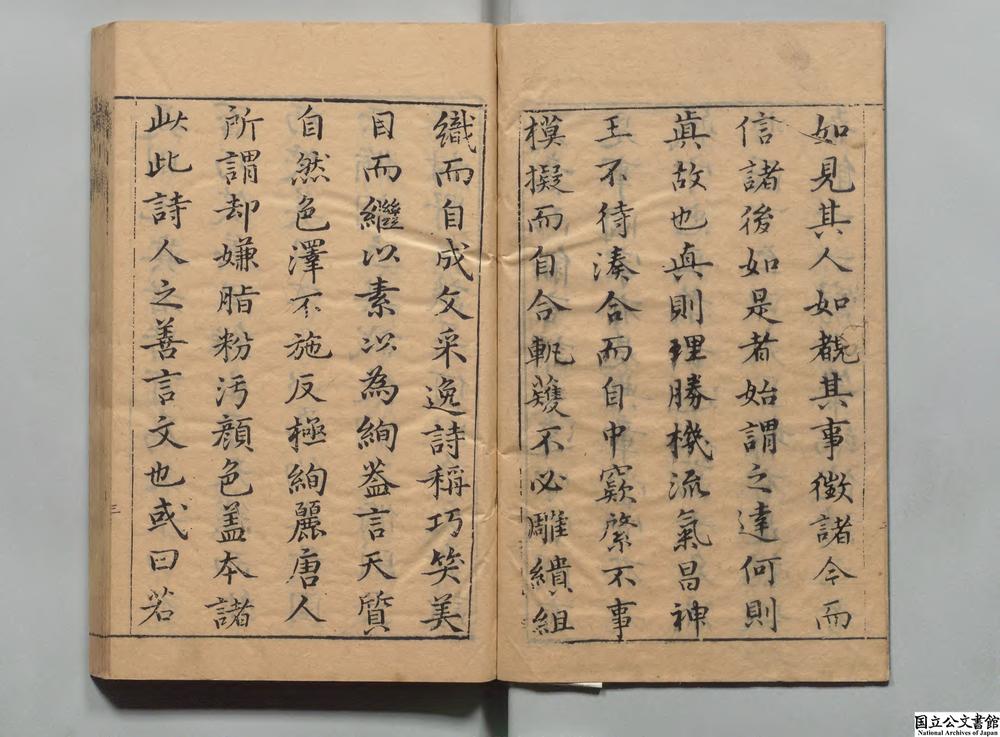 如見其人如覩其事徵諸今而
信諸後如是者始謂之達何則
眞故也真則理勝機流氣昌神
王不待湊合而自中窾綮不事
模擬而自合軌蒦不必雕繢組
織而自成文采逸詩稱巧笑美
目而繼以素以為絢葢言天質
自然色澤不施反極絢麗唐人
所謂却嫌脂粉汚顔色盖本諸
此此詩人之善言文也或曰若
三
国立公文書館
National Archives of Japan